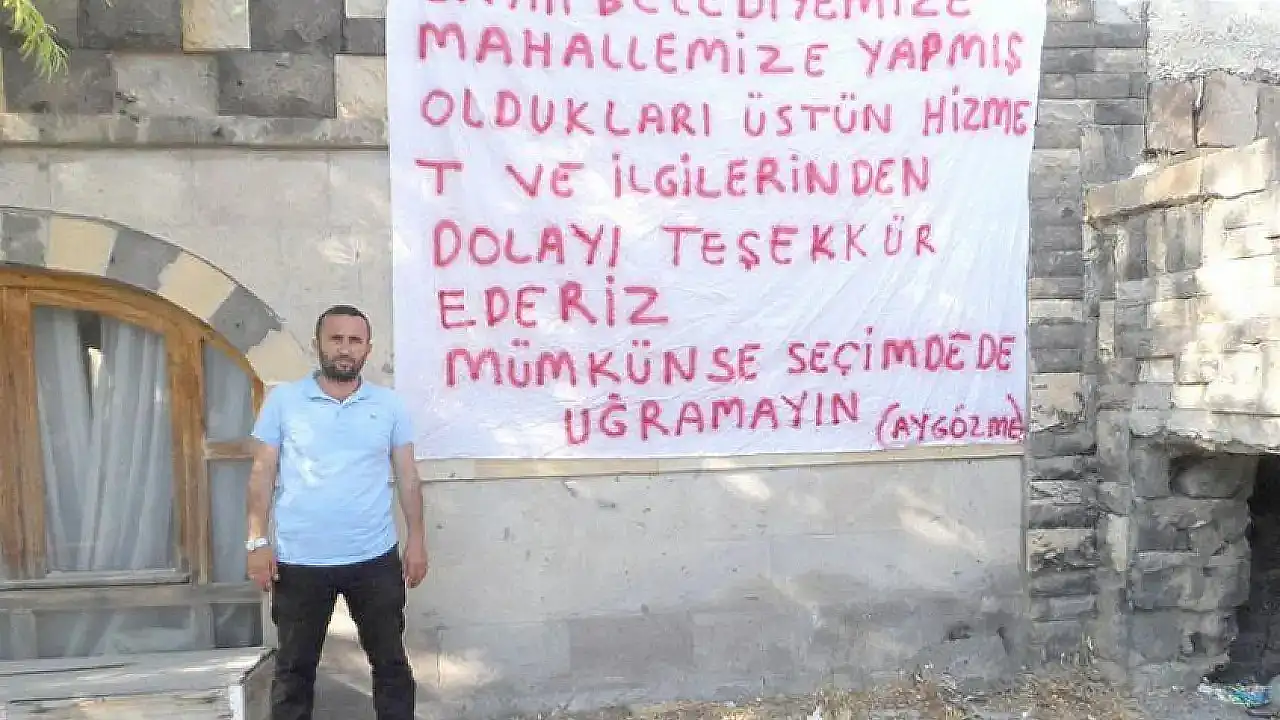 BELEDİYEMİZE
MAHALLEMİZE YAPMIŞ
OLDUKLARI ÜSTÜN HİZME
T VE İLGİLERİNDEN
DOLAYI TEŞEKKÜR
EDERİZ
MÜMKÜNSE SEÇİMDEDE
UĞRAMAYIN (AYGÖZME)